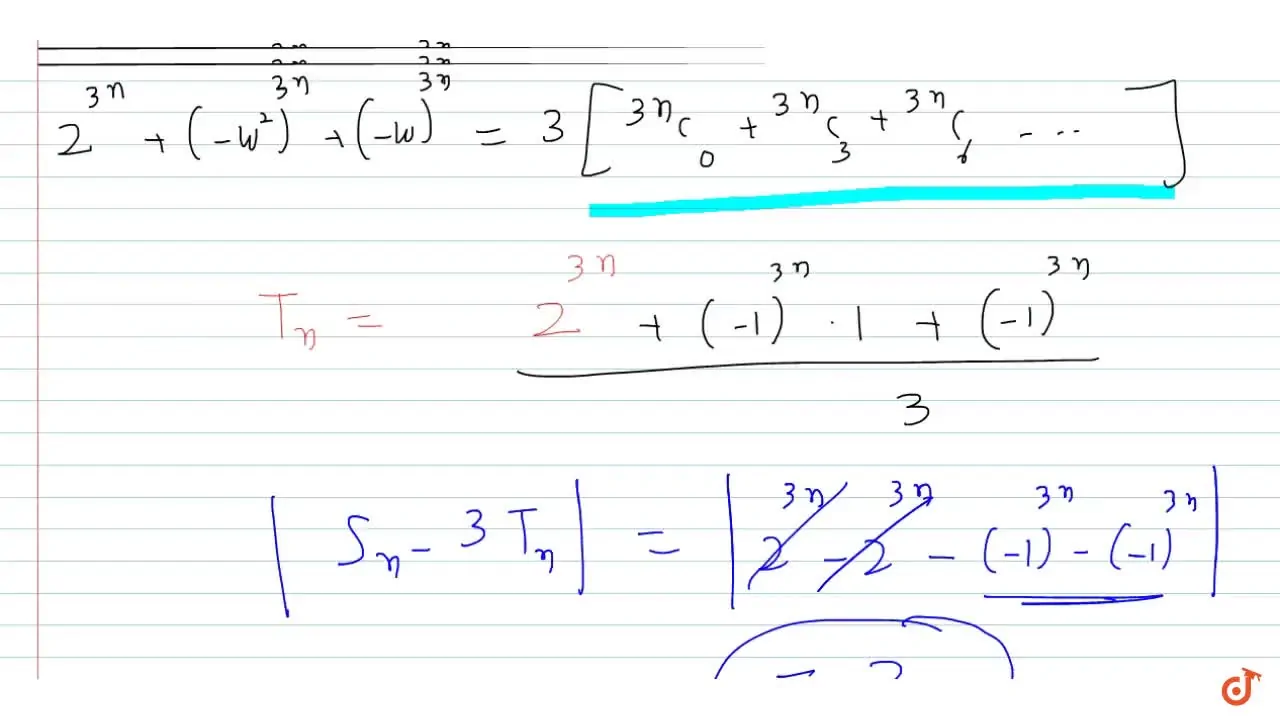 2^{3n} + (-w^2)^{3n} + (-w)^{3n} = 3 [ ^{3n}C_0 + ^{3n}C_3 + ^{3n}C_6 - ... ]
T_n = \frac{2^{3n} + (-1)^{3n} \cdot 1 + (-1)^{3n}}{3}
| S_n - 3 T_n | = | 2^{3n} - 2^{3n} - (-1)^{3n} - (-1)^{3n} |